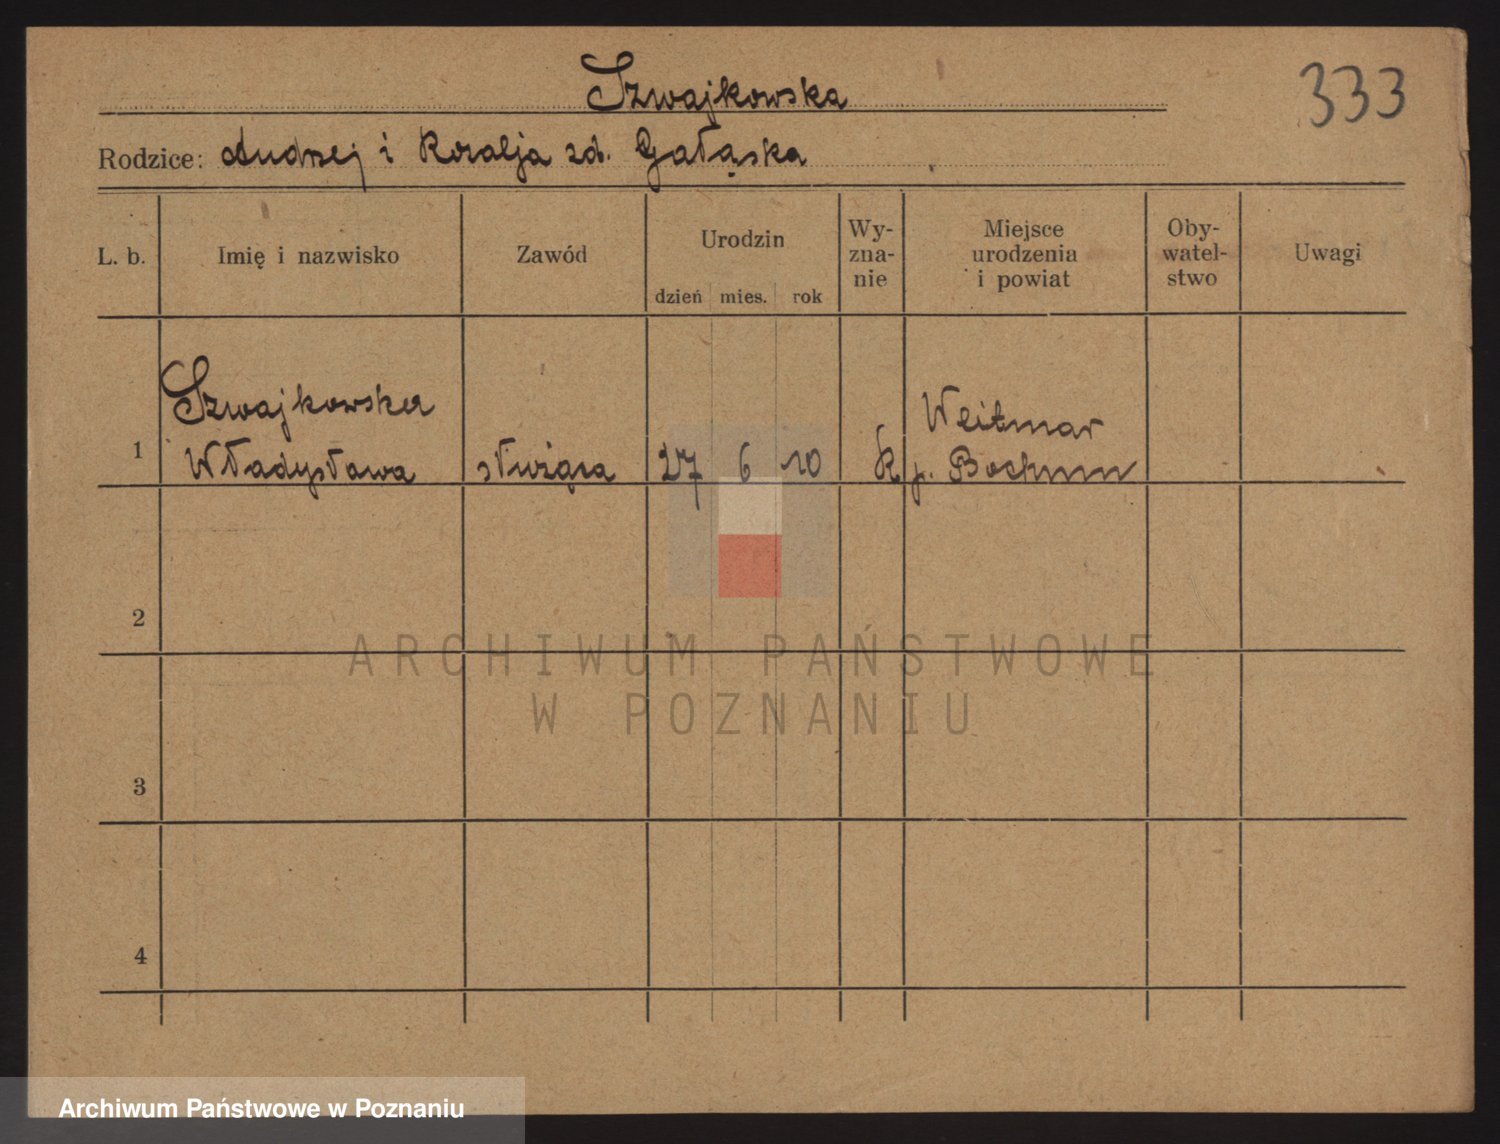 Szwajkowska
333
Rodzice: Andrzej i Rozalja zd. Gałąska
L. b.
Imię i nazwisko
Zawód
Urodzin
dzień mies. rok
Wy-
zna-
nie
Miejsce
urodzenia
i powiat
Oby-
watel-
stwo
Uwagi
1
Szwajkowska
Władysława
służąca
27 6 10
R
Weitmar
p. Bochum
2
3
4
ARCHIWUM PAŃSTWOWE
W POZNANIU
Archiwum Państwowe w Poznaniu